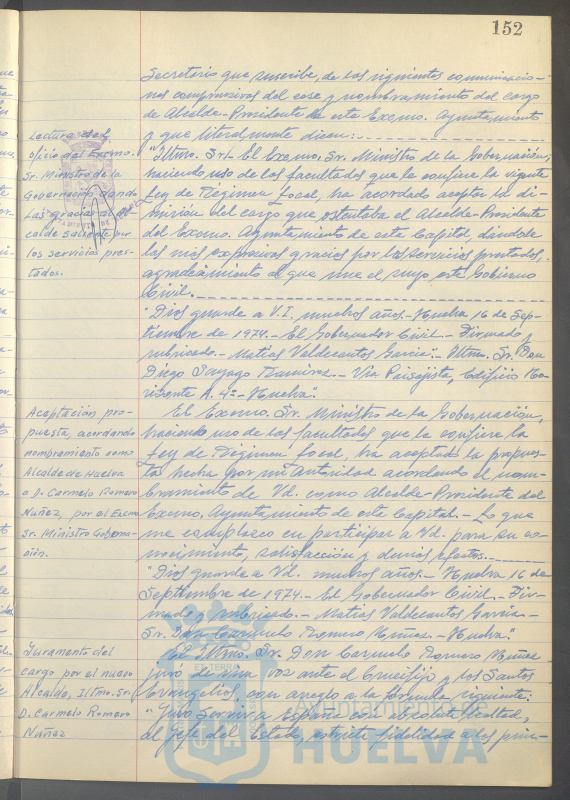 152
Secretario que suscribe, de las siguientes comunicacio-
nes comprensivas del cese y nombramiento del cargo
de Alcalde-Presidente de este Excmo. Ayuntamiento
y que literalmente dicen:
Lectura del
Oficio del Excmo.
Sr. Ministro de la
Gobernación dando
las gracias al Al-
calde saliente por
los servicios pres-
tados.
"Iltmo. Sr.- El Excmo. Sr. Ministro de la Gobernación,
haciendo uso de las facultades que le confiere la vigente
Ley de Régimen Local, ha acordado aceptar la di-
misión del cargo que ostentaba el Alcalde-Presidente
del Excmo. Ayuntamiento de esta Capital, dándole
las más expresivas gracias por los servicios prestados,
agradecimiento al que une el suyo, este Gobierno
Civil.
"Dios guarde a V.I. muchos años.- Huelva 16 de Sep-
tiembre de 1974.- El Gobernador Civil.- Firmado y
rubricado.- Matías Valdecantos García.- Iltmo. Sr. Don
Diego Sayago Ramírez.- Vía Paisajista, Edificio Ho-
rizonte A. 4º.- Huelva".
Aceptación pro-
puesta, acordando
nombramiento como
Alcalde de Huelva
a D. Carmelo Romero
Núñez, por el Excmo
Sr. Ministro Goberna-
ción.
El Excmo. Sr. Ministro de la Gobernación,
haciendo uso de las facultades que le confiere la
Ley de Régimen Local, ha aceptado la propues-
ta hecha por mi Autoridad acordando el nom-
bramiento de Vd. como Alcalde-Presidente del
Excmo. Ayuntamiento de esta Capital.- Lo que
me complazco en participar a Vd. para su co-
nocimiento, satisfacción y demás efectos.-
"Dios guarde a Vd. muchos años.- Huelva 16 de
Septiembre de 1974.- El Gobernador Civil.- Fir-
mado y rubricado.- Matías Valdecantos García.-
Sr. Don Carmelo Romero Núñez.- Huelva"
Juramento del
cargo por el nuevo
Alcalde, Iltmo. Sr.
D. Carmelo Romero
Núñez
El Iltmo. Sr. Don Carmelo Romero Núñez
juró de viva voz ante el Crucifijo y los Santos
Evangelios, con arreglo a la fórmula siguiente:
"Juro servir a España con absoluta lealtad,
al Jefe del Estado, estricta fidelidad a los prin-
Ayuntamiento de
HUELVA